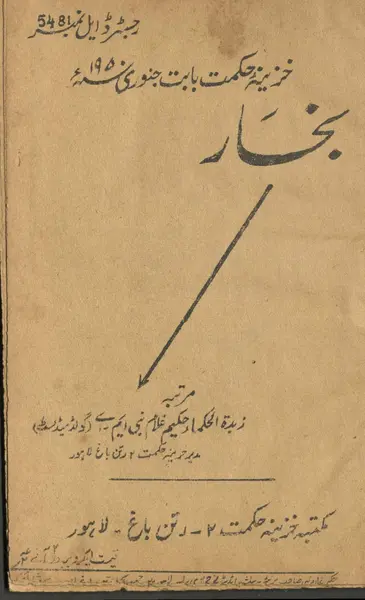 رجسٹرڈ ایل نمبر 5481
خزینۂ حکمت بابت جنوری سنہ ۱۹۵۰ء
بخار
مرتبہ
زبدۃ الحکماء حکیم غلام نبی ایم۔اے (گولڈ میڈلسٹ)
مدیر خزینہ حکمت ۲ رتن باغ لاہور
مکتبہ خزینہ حکمت ۲۔ رتن باغ۔ لاہور
قیمت ایک روپیہ